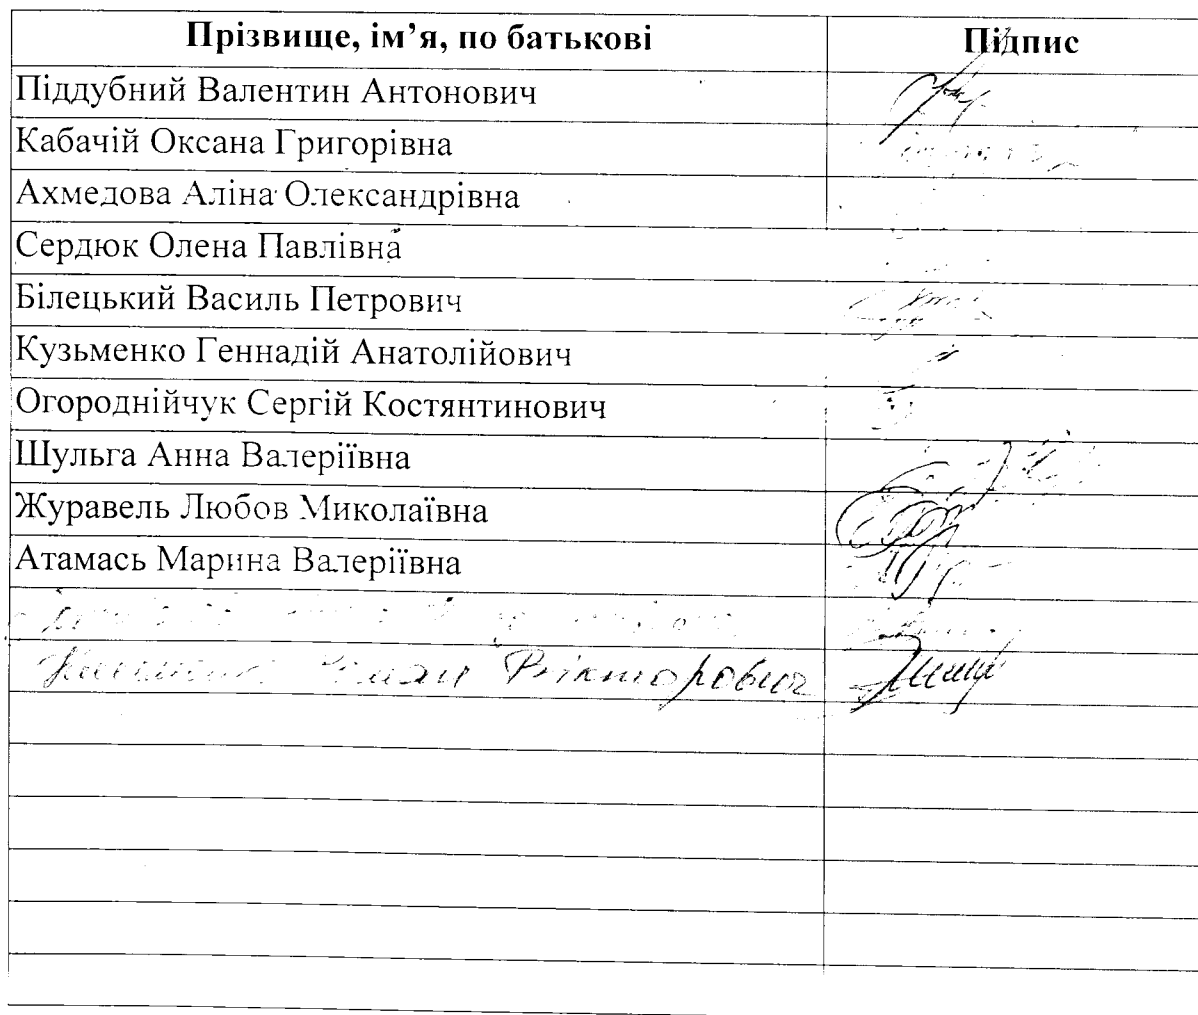 Прізвище, ім’я, по батькові Підпис
Піддубний Валентин Антонович
Кабачій Оксана Григорівна
Ахмедова Аліна Олександрівна
Сердюк Олена Павлівна
Білецький Василь Петрович
Кузьменко Геннадій Анатолійович
Огороднійчук Сергій Костянтинович
Шульга Анна Валеріївна
Журавель Любов Миколаївна
Атамась Марина Валеріївна
Вікторович